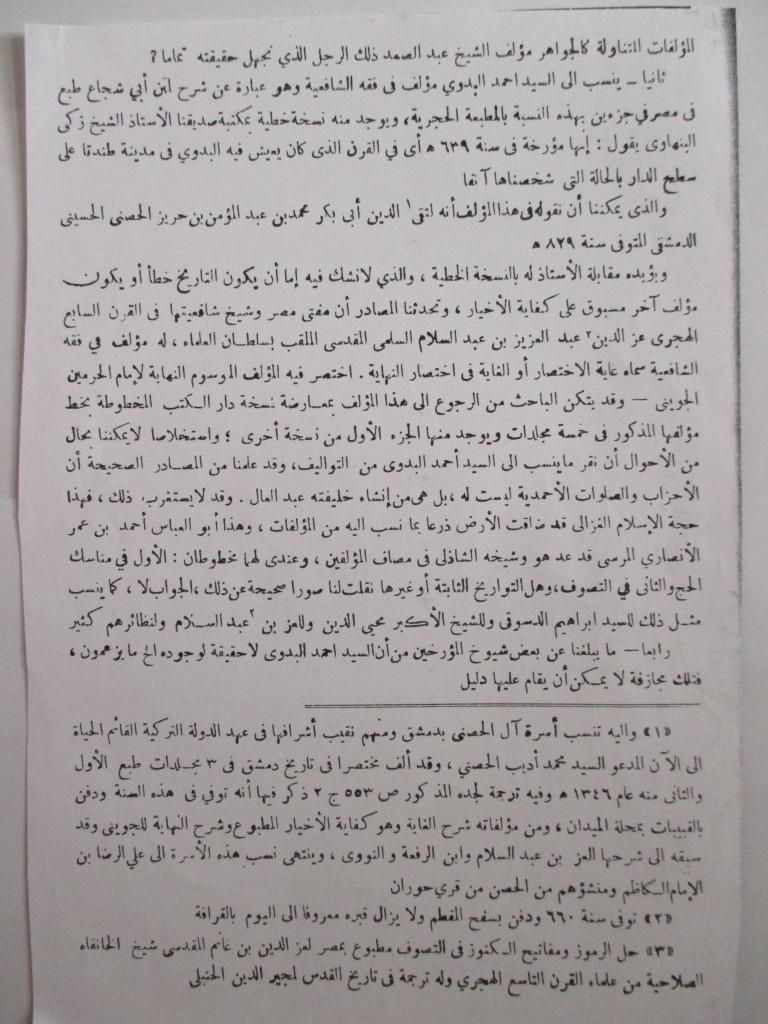 المؤلفات المتناولة كالجواهر مؤلف الشيخ عبد الصمد ذلك الرجل الذي نجهل حقيقته تماما ؟
ثانيا — ينسب الى السيد احمد البدوي مؤلف فى فقه الشافعية وهو عبارة عن شرح لمتن أبي شجاع طبع
فى مصر في جزءين بهذه النسبة بالمطبعة الحجرية، ويوجد منه نسخة خطية بمكتبة صديقنا الأستاذ الشيخ زكى
البنهاوى يقول : إنها مؤرخة فى سنة ٦٣٩ ه أى في القرن الذى كان يعيش فيه البدوي فى مدينة طندتا على
سطح الدار بالحالة التى شخصناها آنفا
والذى يمكننا أن نقوله فى هذا المؤلف أنه لتقى ١ الدين أبي بكر محمد بن عبد المؤمن بن حريز الحصنى الحسينى
الدمشقى المتوفى سنة ٨٢٩ ه
ويؤيده مقابلة الأستاذ له بالنسخة الخطية ، والذي لانشك فيه إما أن يكون التاريخ خطأ أو يكون
مؤلف آخر مسبوق على كفاية الأخيار ، وتحدثنا المصادر أن مفتى مصر وشيخ شافعيتها فى القرن السابع
الهجرى عز الدين ٢ عبد العزيز بن عبد السلام السلمى المقدسى الملقب بسلطان العلماء ، له مؤلف في فقه
الشافعية سماه غاية الاختصار أو الغاية فى اختصار النهاية . اختصر فيه المؤلف الموسوم النهاية لإمام الحرمين
الجوينى — وقد يتكن الباحث من الرجوع الى هذا المؤلف بمعارضة نسخة دار الكتب المخطوطة بخط
مؤلفها المذكور فى خمسة مجلدات ويوجد منها الجزء الأول من نسخة أخرى ؛ واستخلاصا لايمكننا بحال
من الأحوال أن نقر ماينسب الى السيد أحمد البدوى من التواليف، وقد علمنا من المصادر الصحيحة أن
الأحزاب والصلوات الأحمدية ليست له ، بل هى من إنشاء خليفته عبد العال . وقد لايستغرب ذلك ، فهذا
حجة الإسلام الغزالى قد ضاقت الأرض ذرعا بما نسب اليه من المؤلفات ، وهذا أبو العباس أحمد بن عمر
الأنصاري المرسى قد عد هو وشيخه الشاذلى فى مصاف المؤلفين ، وعندى لهما مخطوطان : الأول في مناسك
الحج والثانى في التصوف، وهل التواريخ الثابتة أو غيرها نقلت لنا صورا صحيحة عن ذلك ، الجواب لا ، كما ينسب
مثل ذلك للسيد ابراهيم الدسوقى وللشيخ الأكبر محيى الدين وللعز بن ٣ عبد السلام ولنظائرهم كثير
رابعا — ما يبلغنا عن بعض شيوخ المؤرخين من أن السيد احمد البدوى لاحقيقة لوجوده الخ ما يزعمون ،
فتلك مجازفة لا يمكن أن يقام عليها دليل
«١» واليه تنسب أسرة آل الحصنى بدمشق ومنهم نقيب أشرافها فى عهد الدولة التركية القائم الحياة
الى الآن المدعو السيد محمد أديب الحصني ، وقد ألف مختصرا فى تاريخ دمشق فى ٣ مجلدات طبع الأول
والثانى منه عام ١٣٤٦ ه وفيه ترجمة لجده المذكور ص ٥٥٣ ج ٢ ذكر فيها أنه توفي فى هذه السنة ودفن
بالقبيبات بمحلة الميدان ، ومن مؤلفاته شرح الغاية وهو كفاية الأخيار المطبوع وشرح النهاية للجوينى وقد
سبقه الى شرحها العز بن عبد السلام وابن الرفعة والنووى ، وينتهى نسب هذه الأسرة الى علي الرضا بن
الإمام الكاظم ومنشؤهم من الحصن من قري حوران
«٢» توفى سنة ٦٦٠ ودفن بسفح المقطم ولا يزال قبره معروفا الى اليوم بالقرافة
«٣» حل الرموز ومفاتيح الكنوز فى التصوف مطبوع بمصر لعز الدين بن غانم المقدسى شيخ الخانقاه
الصلاحية من علماء القرن التاسع الهجري وله ترجمة فى تاريخ القدس لمجير الدين الحنبلى